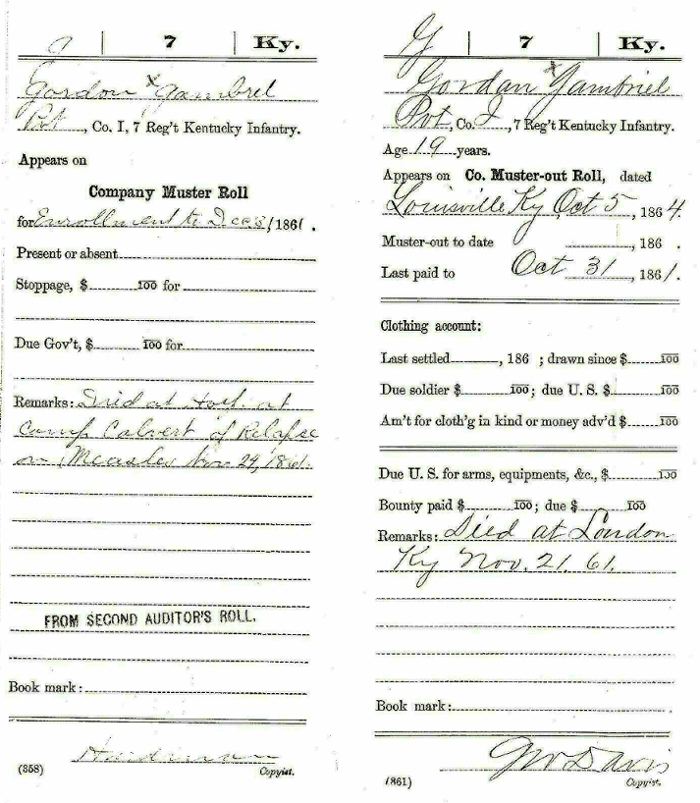 G | 7 | Ky.
Gordon x Gambrel
Pvt, Co. I, 7 Reg't Kentucky Infantry.
Appears on
Company Muster Roll
for Enrollment to Dec 31, 1861.
Present or absent
Stoppage, $ 100 for
Due Gov't, $ 100 for
Remarks: Died at Hosp. at
Camp Calvert of Relapse
on Measles Nov 24, 1861.
FROM SECOND AUDITOR'S ROLL.
Book mark:
(358)
Copyist.
G | 7 | Ky.
Gordan x Gambriel
Pvt, Co. I, 7 Reg't Kentucky Infantry.
Age 19 years.
Appears on Co. Muster-out Roll, dated
Louisville Ky, Oct 5, 1864.
Muster-out to date , 186 .
Last paid to Oct 31, 1861.
Clothing account:
Last settled , 186 ; drawn since $ 100
Due soldier $ 100; due U. S. $ 100
Am't for cloth'g in kind or money adv'd $ 100
Due U. S. for arms, equipments, &c., $ 100
Bounty paid $ 100; due $ 100
Remarks: Died at London
Ky Nov. 21. 61.
Book mark:
Davis
(861)
Copyist.